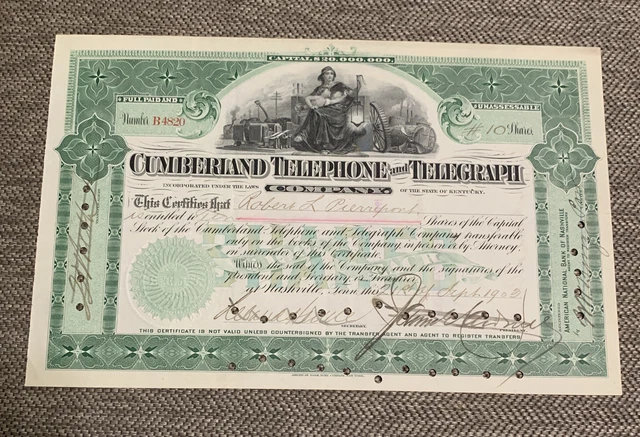 CAPITAL $20,000,000.
FULL PAID AND
UNASSESSABLE
Number B4820
# 10 Shares
CUMBERLAND TELEPHONE and TELEGRAPH
INCORPORATED UNDER THE LAWS COMPANY. OF THE STATE OF KENTUCKY.
This Certifies that Robert L Pierrepont
is entitled to Ten Shares of the Capital
Stock of the Cumberland Telephone and Telegraph Company transferable
only on the books of the Company in person or by Attorney
on surrender of this Certificate.
Witness the seal of the Company and the signatures of the
President and Secretary or Treasurer
at Nashville, Tenn. this Sept. 190
SECRETARY.
THIS CERTIFICATE IS NOT VALID UNLESS COUNTERSIGNED BY THE TRANSFER AGENT AND AGENT TO REGISTER TRANSFERS
AMERICAN NATIONAL BANK OF NASHVILLE